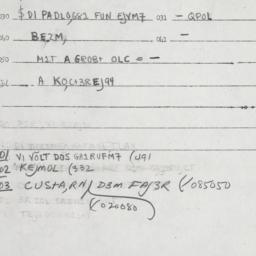 030 $ DI PADLO,G82 FUN EJVM7 031 - QPOL
040 BE2M, 042 -
050 M2T A GROB+ OLC = -
A KO,C+3REJ94
01 VI VOLT DOS GA1RUFM7 (J91
02 KEJMOL (332
03 CUS+A,RN/ D3M FA/3R (/085050
(/020080